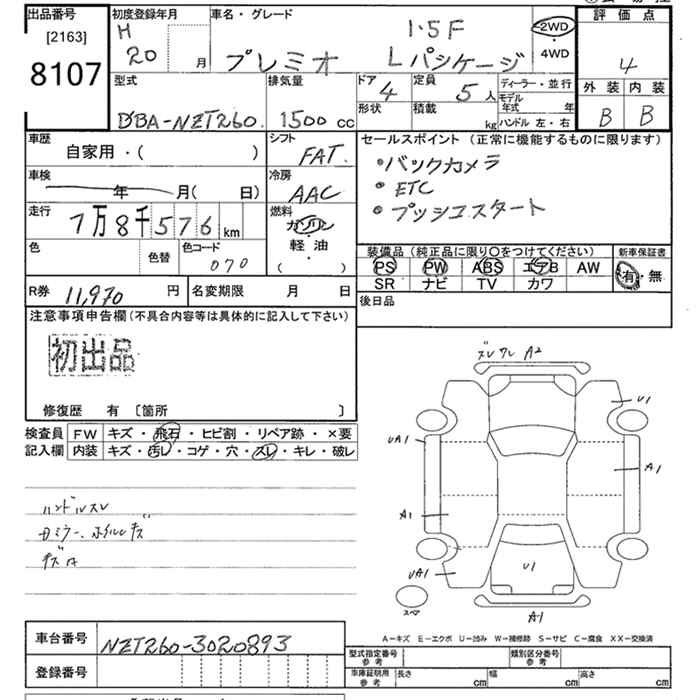 出品番号
[2163]
8107
初度登録年月
H
20 月
車名・グレード
1.5F
プレミオ Lパッケージ
2WD
・
4WD
評価点
4
外装 内装
B B
型式
DBA-NZT260
排気量
1500 cc
ドア
4
定員
5 人
形状
積載
kg
ディーラー・並行
モデル年式 年
ハンドル 左・右
車歴
自家用・( )
シフト
FAT
車検
年 月( 日)
冷房
AAC
走行
7万8千576 km
燃料
ガソリン
・
軽油
( )
色
色替
色コード
070
セールスポイント (正常に機能するものに限ります)
・バックカメラ
・ETC
・プッシュスタート
装備品 (純正品に限り〇をつけてください)
PS PW ABS エアB AW
SR ナビ TV カワ
新車保証書
有・無
R券 11,970 円
名変期限 月 日
後日品
注意事項申告欄 (不具合内容等は具体的に記入して下さい)
初出品
修復歴 有 〔箇所 〕
検査員記入欄
FW キズ・飛石・ヒビ割・リペア跡・×要
内装 キズ・汚レ・コゲ・穴・スレ・キレ・破レ
ハンドルスレ
ズレワレ A2
U1
UA1
A1
A1
UA1
U1
A1
スペア
A-キズ E-エクボ U-凹み W-補修跡 S-サビ C-腐食 XX-交換済
車台番号
NZT260-3020893
登録番号
型式指定番号
参考
類別区分番号
参考
車庫証明用
参考
長さ cm
幅 cm
高さ cm